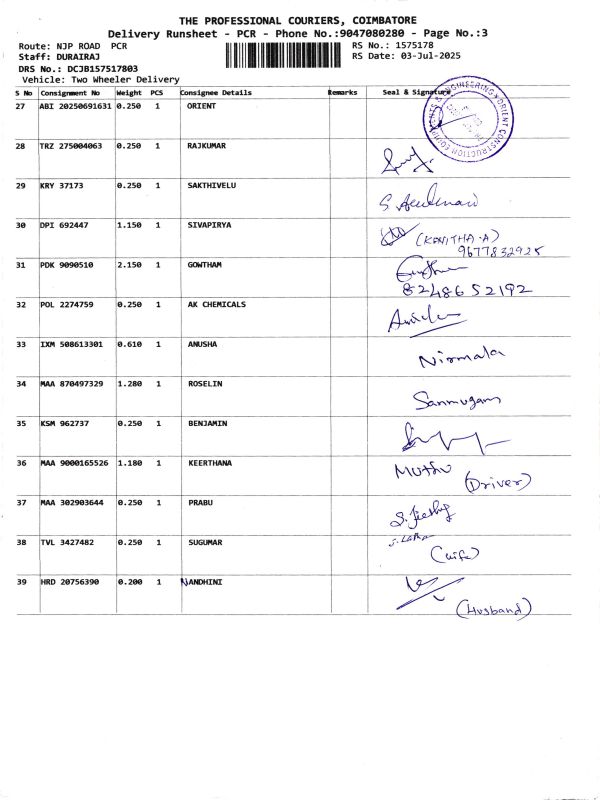 THE PROFESSIONAL COURIERS, COIMBATORE
Delivery Runsheet - PCR - Phone No.:9047080280 - Page No.:3
Route: NJP ROAD PCR
RS No.: 1575178
Staff: DURAIRAJ
RS Date: 03-Jul-2025
DRS No.: DCJB157517803
Vehicle: Two Wheeler Delivery
S No Consignment No Weight PCS Consignee Details Remarks Seal & Signature
27 ABI 20250691631 0.250 1 ORIENT
ORIENT CONSTRUCTION EQUIPMENTS & ENGINEERING
28 TRZ 275004063 0.250 1 RAJKUMAR
29 KRY 37173 0.250 1 SAKTHIVELU
30 DPI 692447 1.150 1 SIVAPIRYA
(KAVITHA.A)
9677832925
31 PDK 9090510 2.150 1 GOWTHAM
8248652192
32 POL 2274759 0.250 1 AK CHEMICALS
33 IXM 508613301 0.610 1 ANUSHA Nirmala
34 MAA 870497329 1.280 1 ROSELIN Sanmugam
35 KSM 962737 0.250 1 BENJAMIN
36 MAA 9000165526 1.180 1 KEERTHANA Muthu
(Driver)
37 MAA 302903644 0.250 1 PRABU
38 TVL 3427482 0.250 1 SUGUMAR S. Latha
(wife)
39 HRD 20756390 0.200 1 NANDHINI
(Husband)